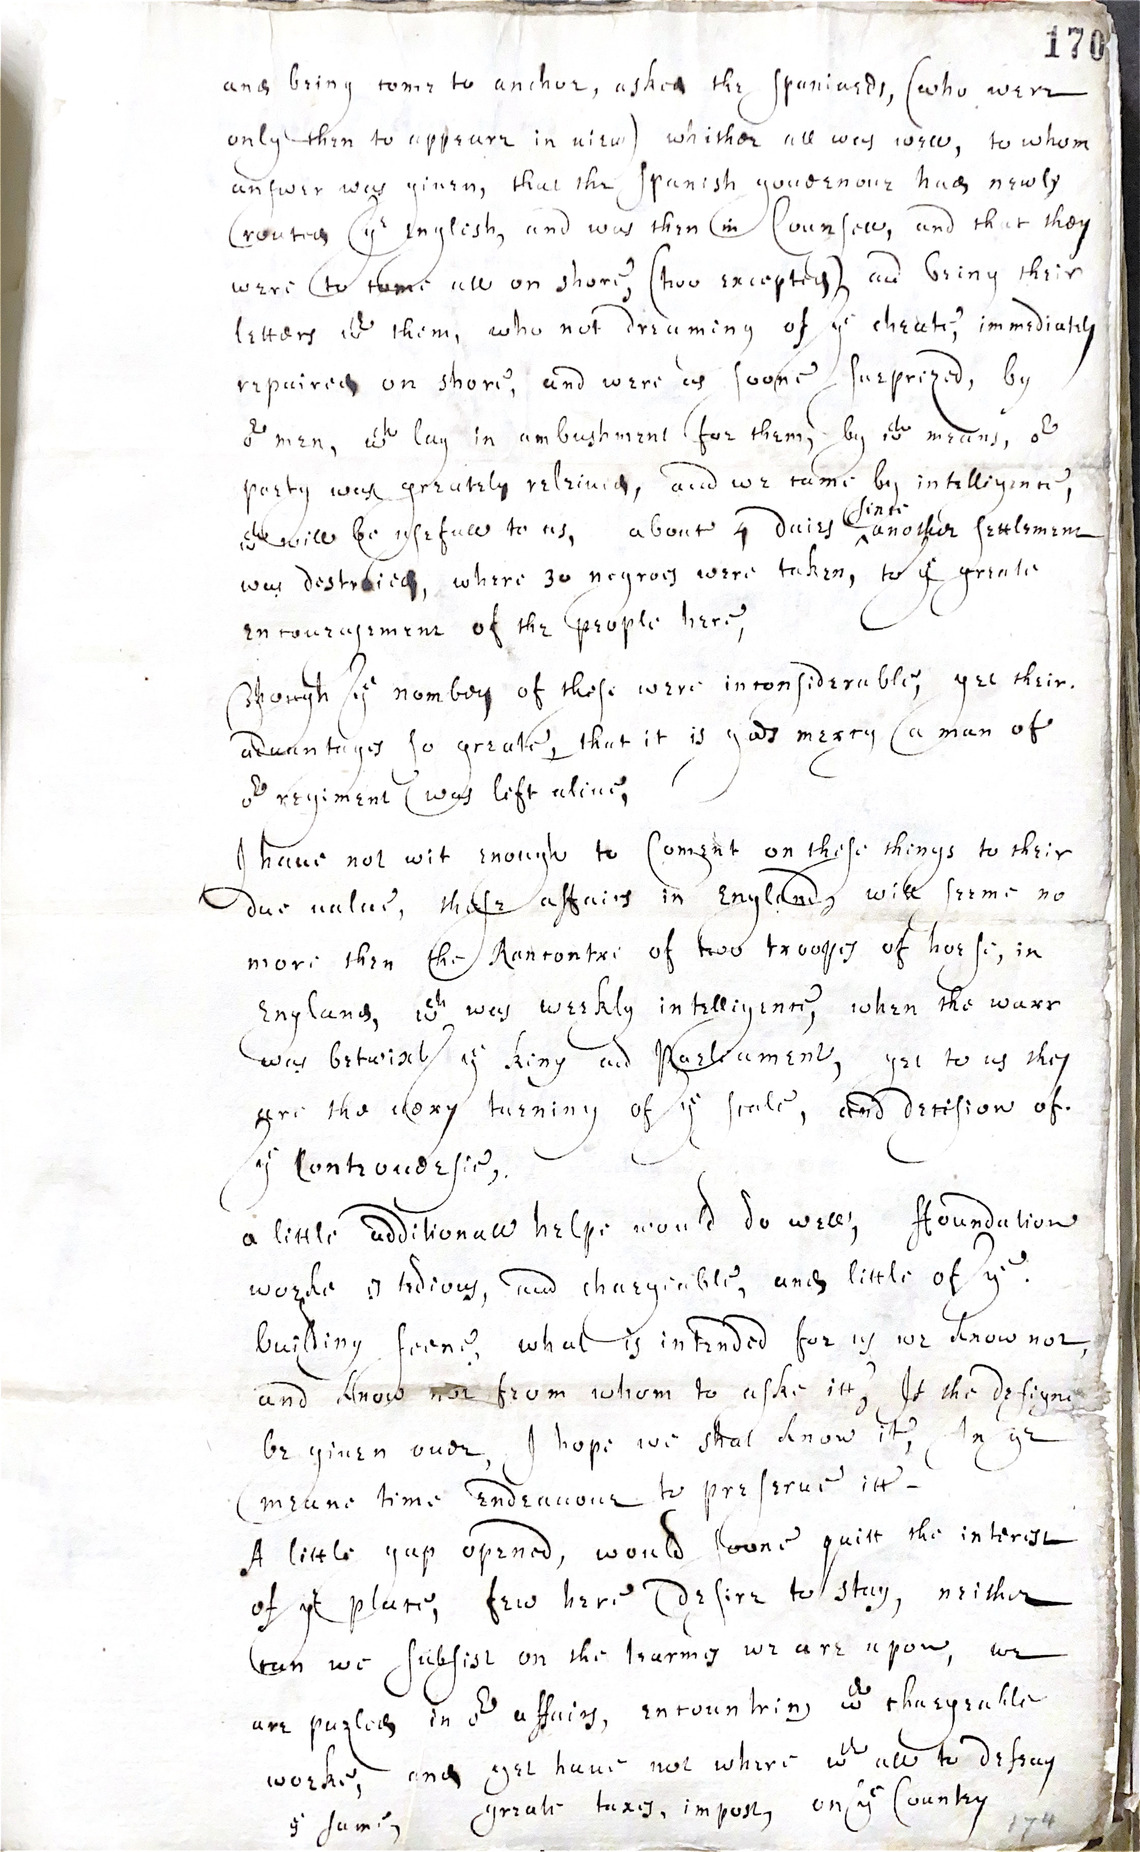 170
and being come to anchor, asked the Spaniards, (who were
only then to appeare in uiew) whither all was well, to whom
answer was giuen, that the Spanish gouernour had newly
routed ye English, and was then in Counsell, and that they
were to come all on shore, (two excepted) and bring their
letters wth them, who not dreaming of ye cheate, immediately
repaired on shore, and were as soone surprized, by
or men, wch lay in ambushment for them, by wch means, or
party was greately releiued, and we came by intelligence,
wch will be usefull to us, about 4 daies since another settlement
was destroied, where 30 negroes were taken, to ye greate
encouragement of the people here,
Though ye nomber of these were inconsiderable, yet their
aduantages so greate, that it is gods mercy a man of
or regiment was left aliue,
I haue not wit enough to Coment on these things to their
due ualue, these affairs in England, will seeme no
more then the Rancontre of two troopes of horse, in
England, wch was weekly intelligence, when the warr
was betwixt ye King and Parleament, yet to us they
are the uery turning of ye scale, and decision of
ye Controuersie,
a little additionall helpe would do well, ffoundation
worke is tedious, and chargeable, and little of ye
building seene, what is intended for us we know not,
and know not from whom to aske itt, If the designe
be giuen ouer, I hope we shal know it, In ye
meane time Endeauour to preserue itt -
A little gap opened, would soone quitt the interest
of ye place, few here desire to stay, neither
can we subsist on the tearmes we are upon, we
are puzled in or affairs, encountring wth chargeable
worke, and yet haue not where wth all to defray
ye same, greate taxes, impost, on ye Country
174